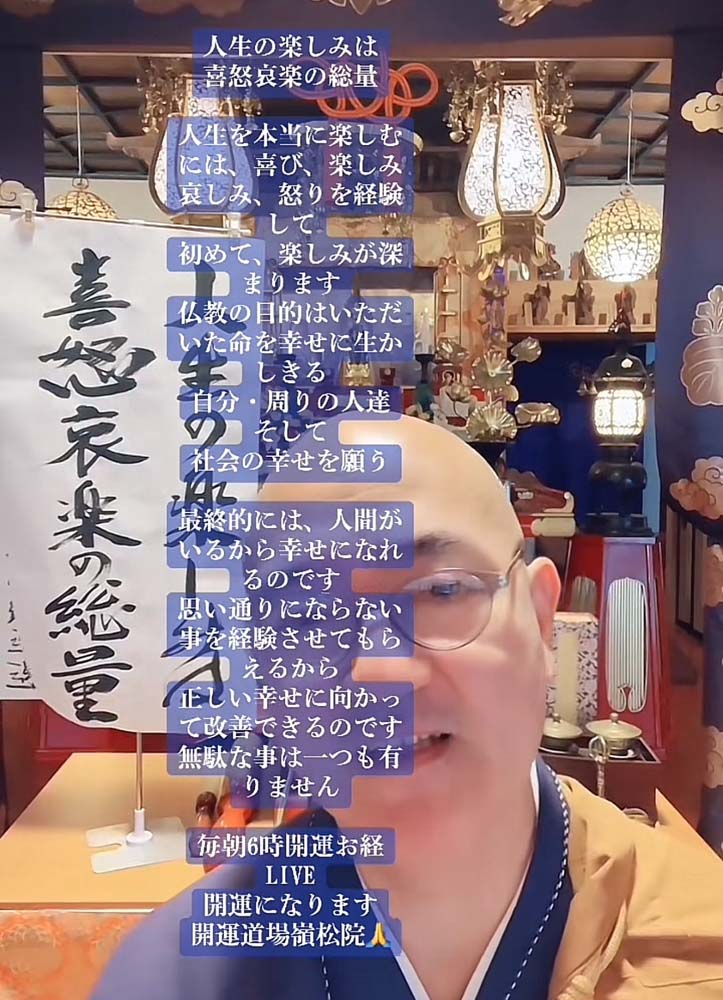 人生の楽しみは
喜怒哀楽の総量
人生を本当に楽しむ
には、喜び、楽しみ
哀しみ、怒りを経験
して
初めて、楽しみが深
まります
仏教の目的はいただ
いた命を幸せに生か
しきる
自分・周りの人達
そして
社会の幸せを願う
最終的には、人間が
いるから幸せになれ
るのです
思い通りにならない
事を経験させてもら
えるから
正しい幸せに向かっ
て改善できるのです
無駄な事は一つも有
りません
毎朝6時開運お経
LIVE
開運になります
開運道場嶺松院🙏
人生の楽しみ
喜怒哀楽の総量